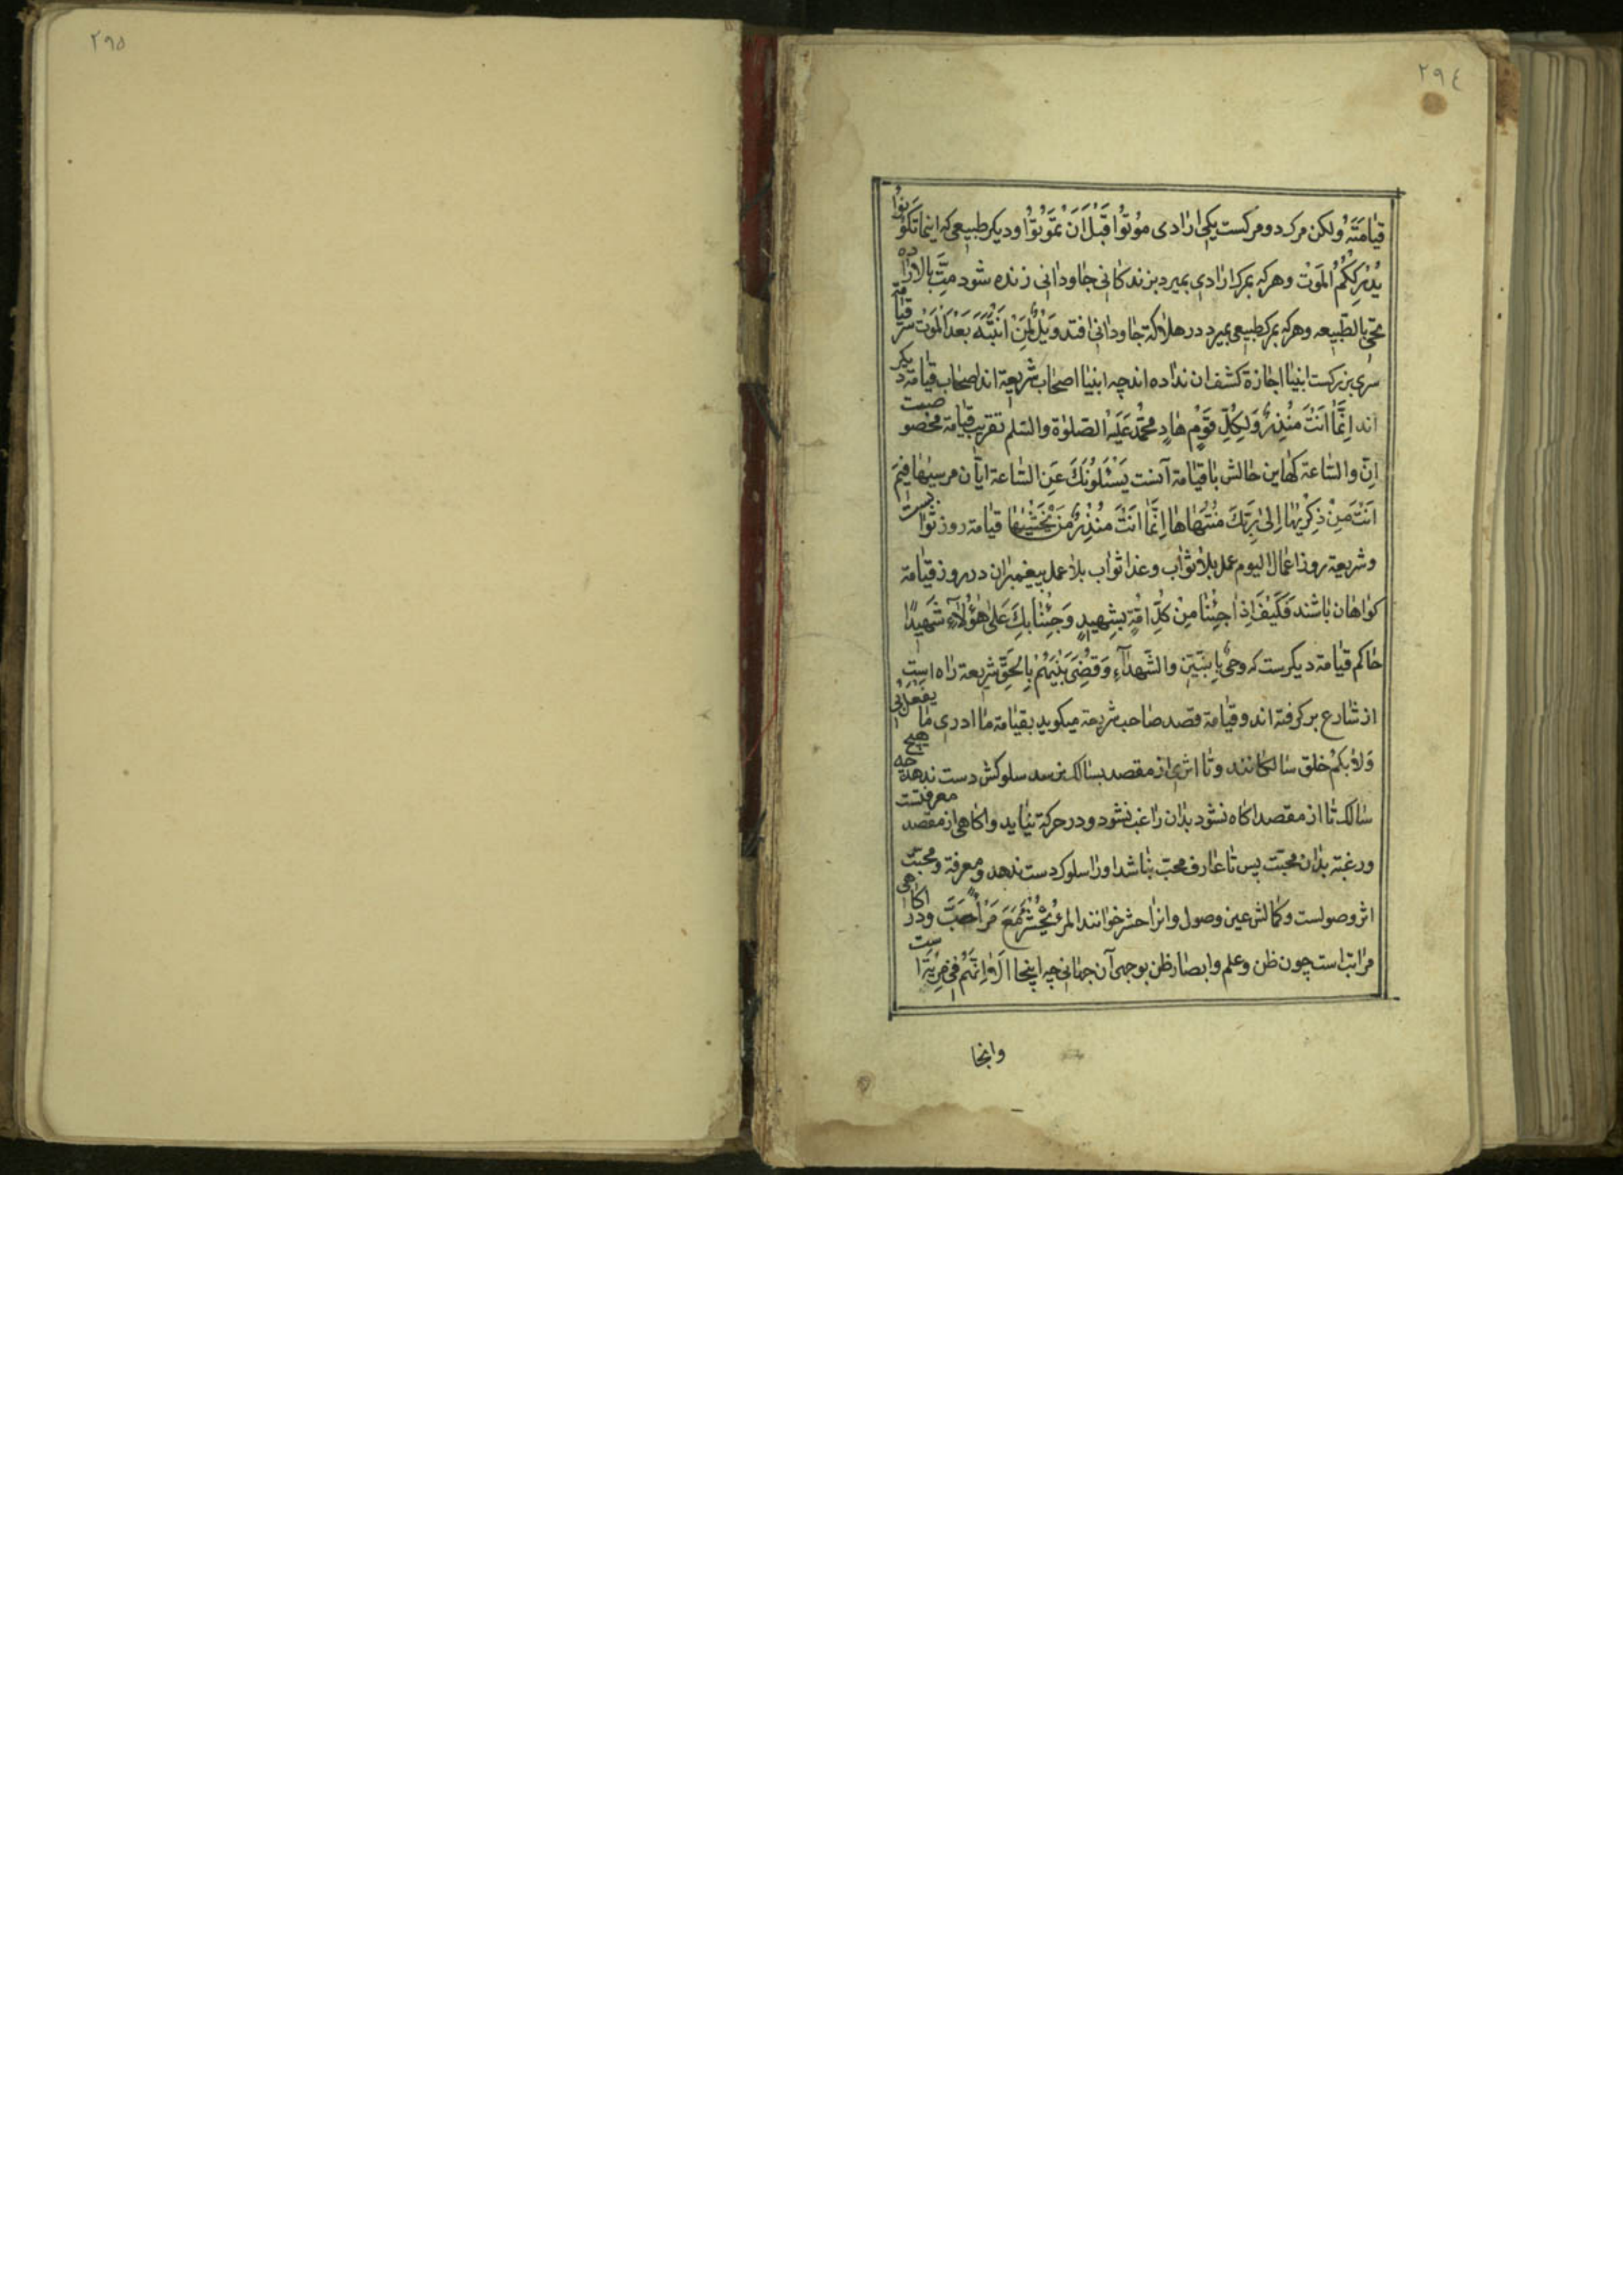 ٢٩٥
٢٩٤
قیامته ولکن مرک دو مرکست یکی ارادی مُوتُوا قَبْلَ اَنْ تَمُوتُوا و دیکر طبیعی که اینما تکونوا
یُدْرِکْکُمُ الْمَوْت و هرکه بمرک ارادی بمیرد بزندکانی جاودانی زنده شود مت بالاراده
تحی بالطبیعه و هرکه بمرک طبیعی بمیرد در هلاکة جاودانی افتد وَیْلٌ لِمَنْ انتبه بَعْدَ الْمَوْت سرّ قیامة
سری بزرکست انبیا اجازة کشف ان نداده اند چه انبیا اصحاب شریعة اند اصحاب قیامة دیکر
اند اِنَّما اَنْتَ مُنْذِرٌ وَلِکُلِّ قَوْمٍ هادٍ محمّد عَلَیْهِ الصّلوٰة والسّلم تقریب قیامة مخصوصست
انّ والسّاعة کهاین حالش با قیامة آنست یَسْئَلُونَکَ عَنِ السّاعة ایّان مرسیها فیم
اَنْتَ مِنْ ذِکْریٰها اِلیٰ رَبِّکَ مُنْتَهاها اِنَّما اَنْتَ مُنْذِرُ مَنْ یَخْشیٰها قیامة روز ثوابست
و شریعة روز اعمال الیوم عمل بلا ثواب و غدا ثواب بلا عمل پیغمبران در روز قیامة
کواهان باشند فَکَیْفَ اِذا جِئْنا مِنْ کُلِّ اُمَّةٍ بِشَهیدٍ وَجِئْنا بِکَ عَلیٰ هٰؤُلآءِ شَهیدًا
حاکم قیامة دیکرست که وجیء بالنبیّین والشّهدآءِ وَقُضِیَ بَیْنَهُمْ بِالْحَقِّ شریعة راه است
از شارع بر کرفته اند و قیامة قصد صاحب شریعة میکوید بقیامة ما ادری ما یفعل بی
وَلا بکم خلق سالکانند و تا اثری از مقصد بسالک نرسد سلوکش دست ندهد چه هیچ
سالک تا از مقصد اکاه نشود بدان راغب نشود و در حرکة نیاید و اکاهی از مقصد معرفتست
و رغبة بدان محبّت پس تا عارف محبّ نباشد او را سلوک دست ندهد و معرفة و محبّت
اثر وصولست و کمالش عین وصول و انرا حشر خوانند المرء یُحْشَرُ مَعَ مَنْ اَحَبَّ و در اکاهی
مراتب است چون ظن و علم و ابصار ظن بوجهی آن جهانی چه اینجا اَلا اِنَّهُمْ فی مِرْیَةٍ است
وانجا